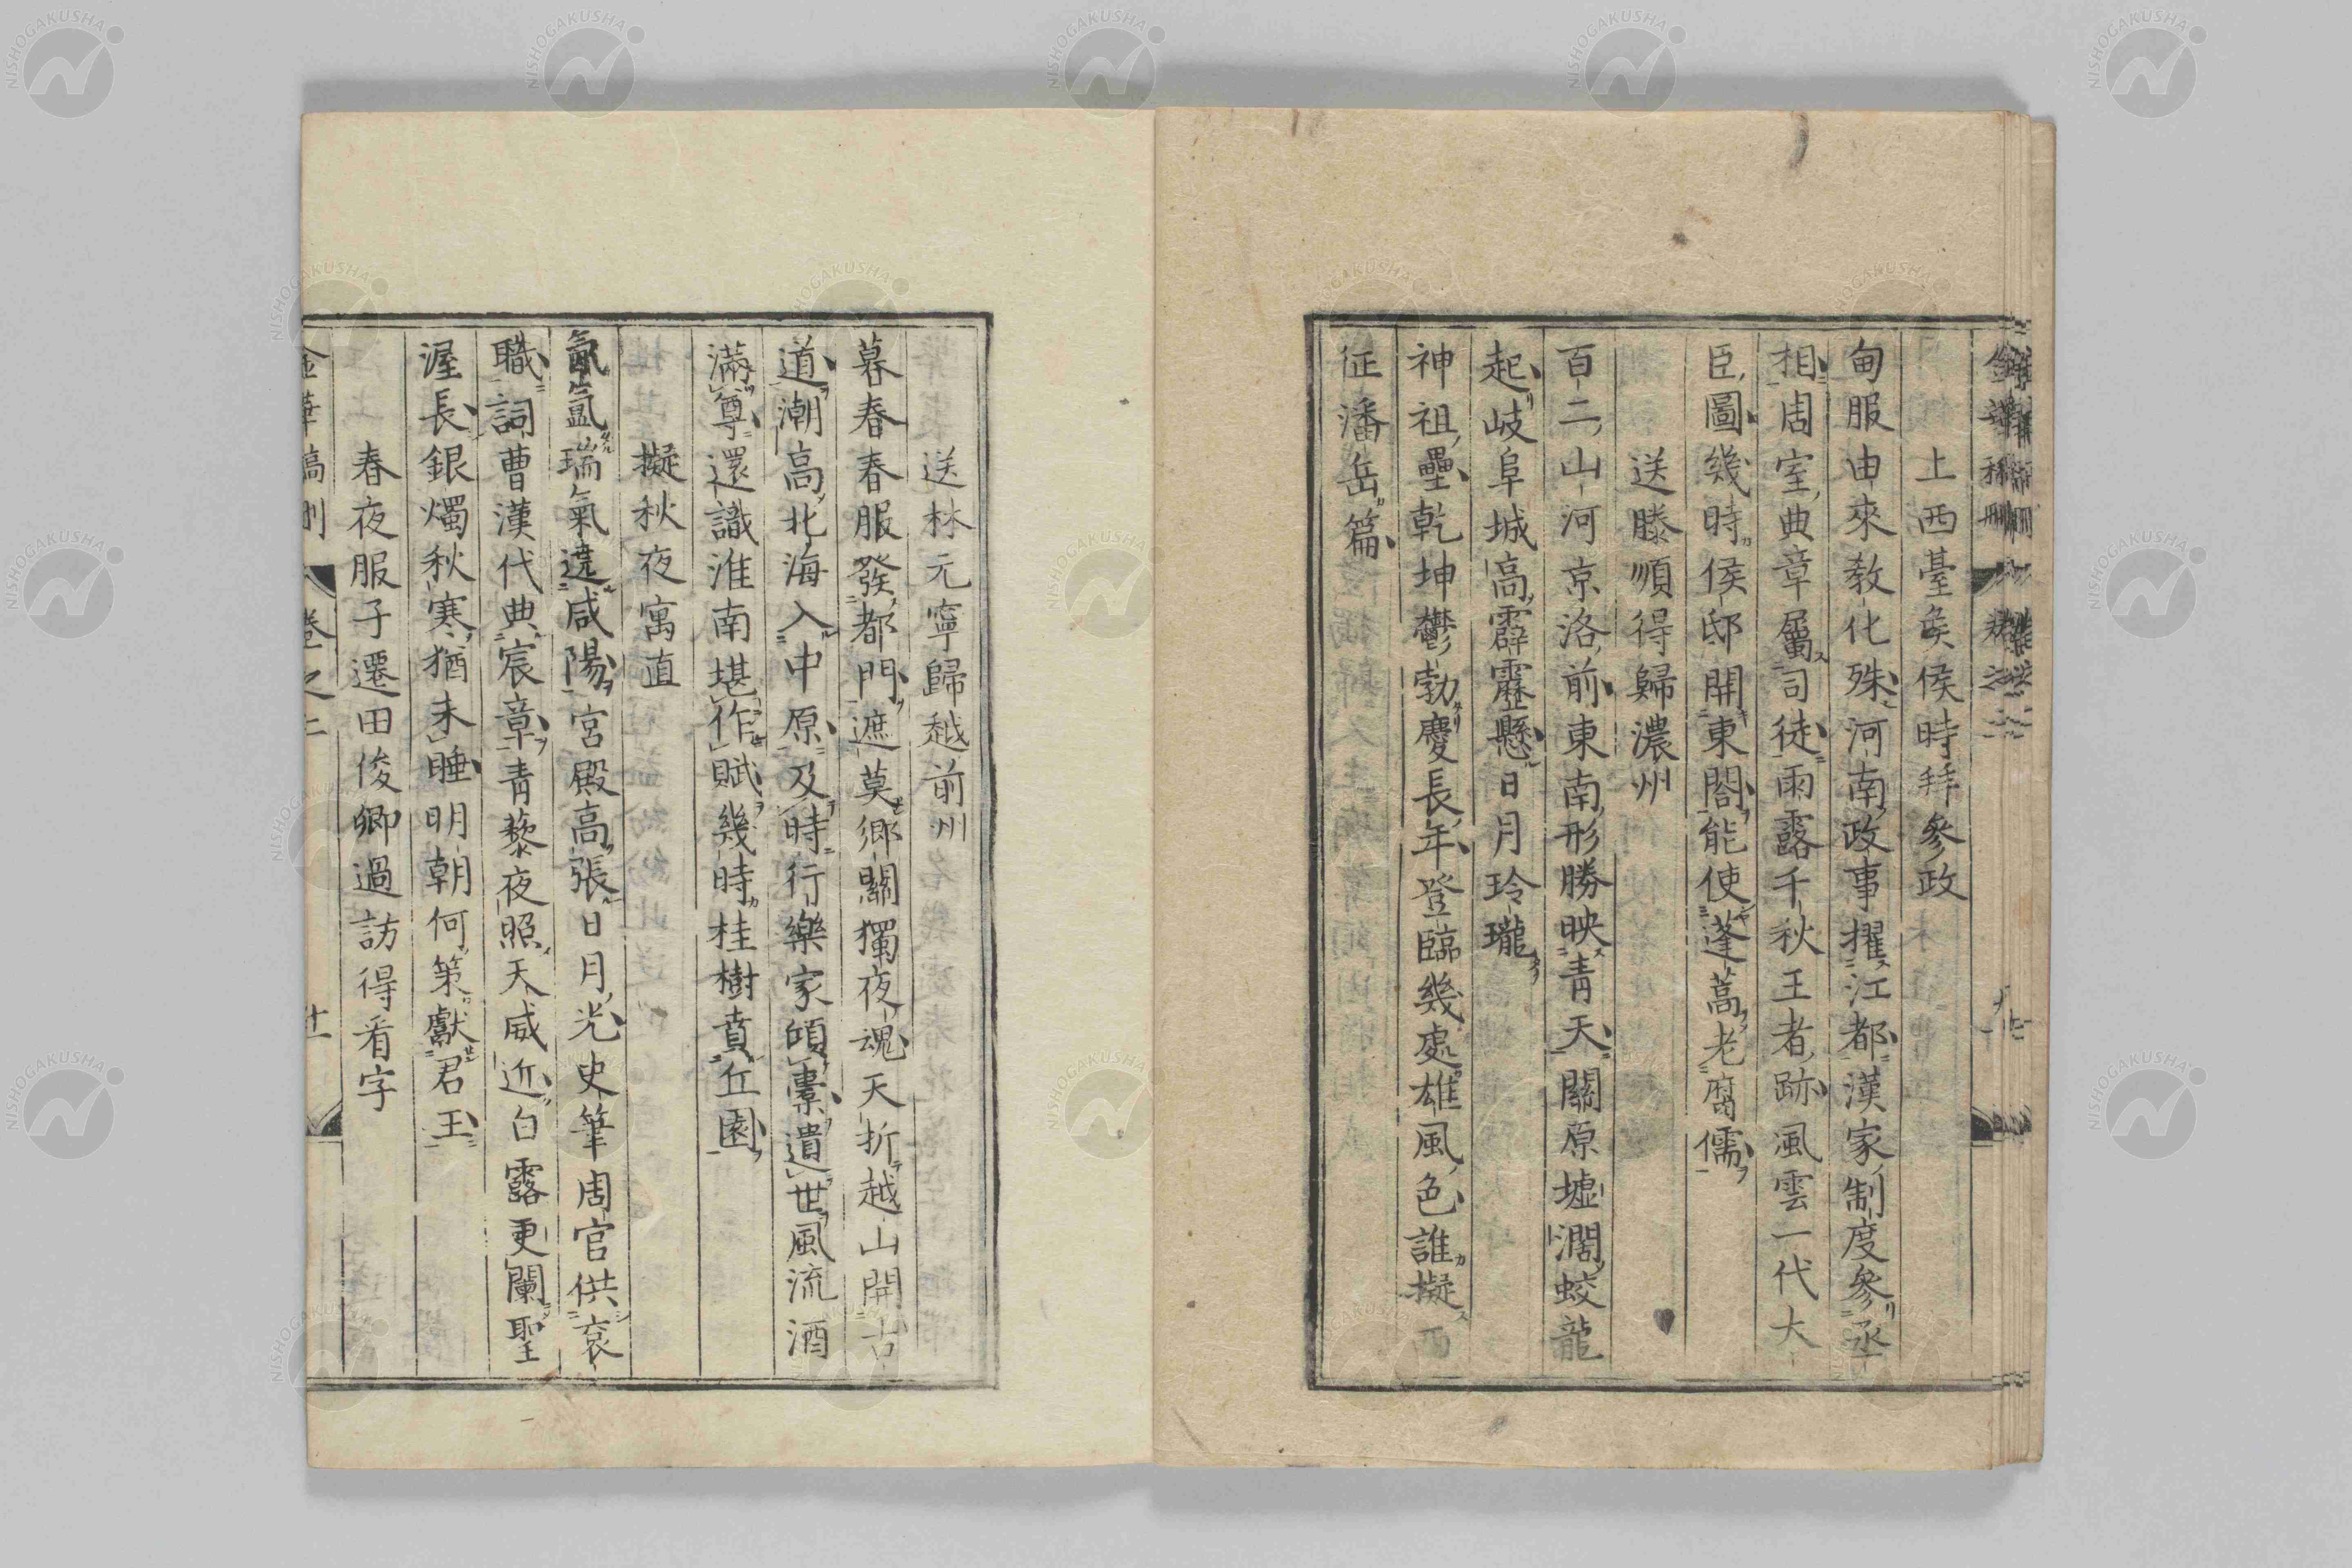 上西臺矦侯時拜參政
甸服由來教化殊河南政事擢江都漢家制度參丞
相周室典章屬司徒雨露千秋王者跡風雲一代大
臣圖幾時侯邸開東閤能使蓬蒿老腐儒
送滕順得歸濃州
百二山河京洛前東南形勝映青天關原墟濶蛟龍
起岐阜城高霹靂懸日月玲瓏
神祖壘乾坤鬱勃慶長年登臨幾處雄風色誰擬西
征潘岳篇
送林元寧歸越前州
暮春春服發都門遮莫鄉關獨夜魂天折越山開古
道潮高北海入中原及時行樂家頌橐遺世風流酒
滿尊還識淮南堪作賦幾時桂樹賁丘園
擬秋夜寓直
氤氳瑞氣遶咸陽宮殿高張日月光史筆周官供袞
職詞曹漢代典宸章青藜夜照天威近白露更闌聖
渥長銀燭秋寒猶未睡明朝何策獻君王
春夜服子遷田俊卿過訪得看字
金華稿刪 卷之二 廿
NISHOGAKUSHA